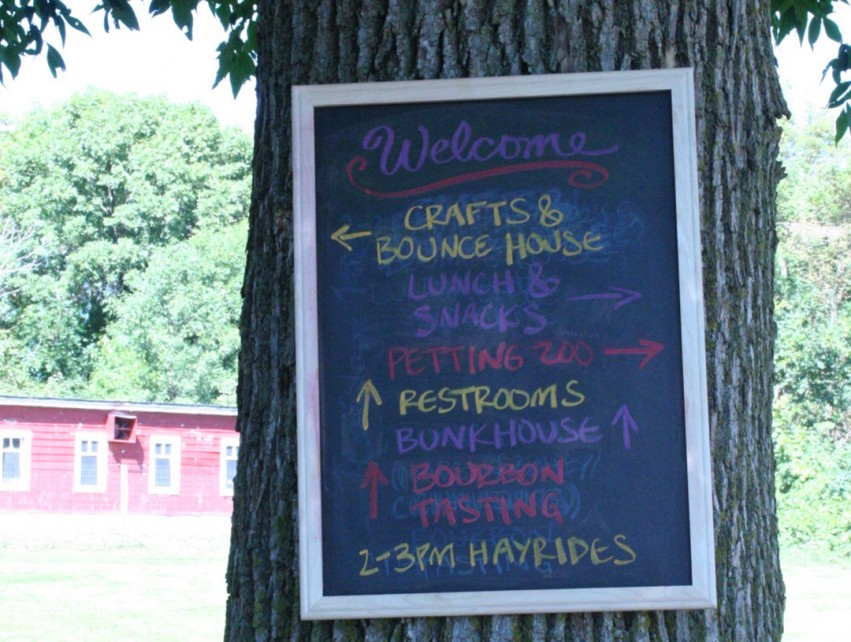 Welcome
← CRAFTS &
BOUNCE HOUSE
LUNCH & →
SNACKS
PETTING ZOO →
↑ RESTROOMS
BUNKHOUSE ↑
↑ BOURBON
TASTING
2-3PM HAYRIDES